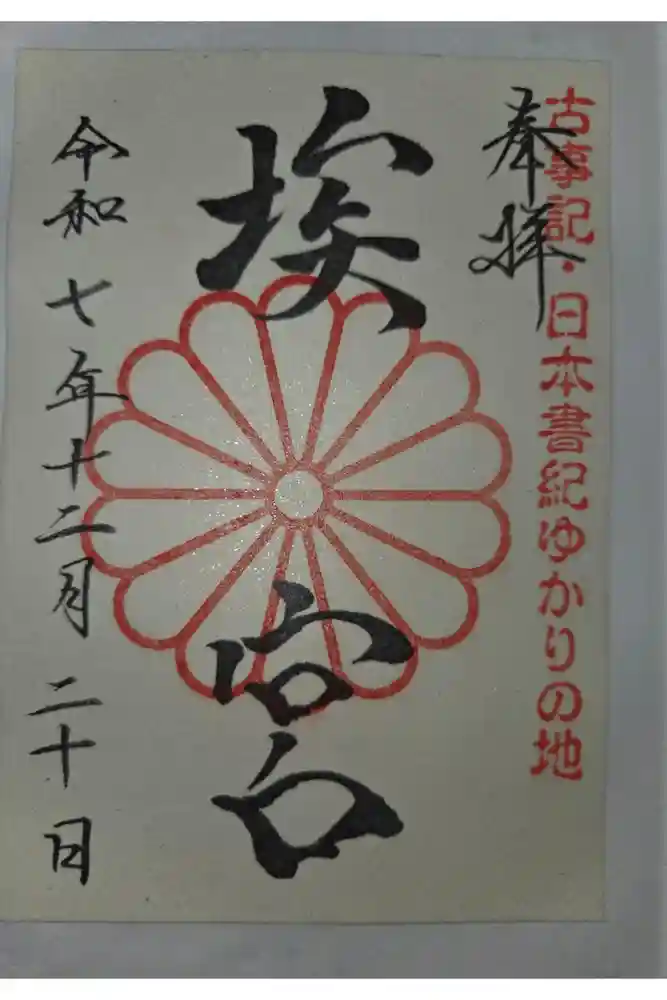 奉拝
古事記・日本書紀ゆかりの地
埃宮
令和七年十二月二十日